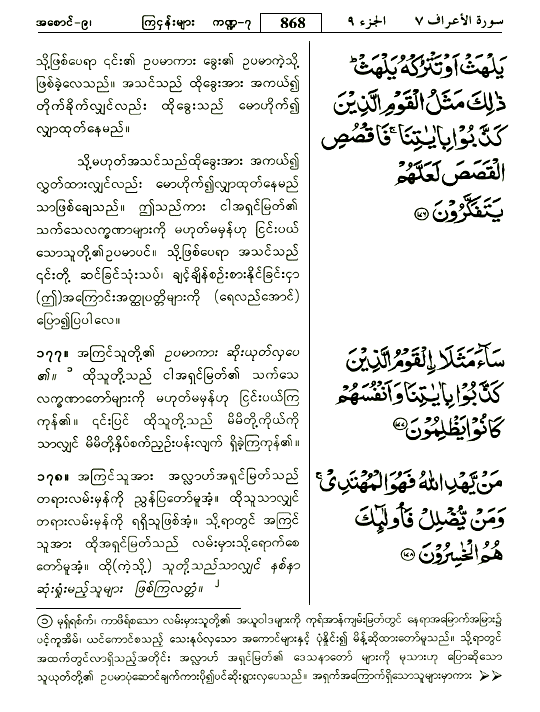 အစောင်-၉၊ ကြငှန်းများ ကဏ္ဍ-၇ 868 الجزء ٩ سورة الأعراف ٧
သို့ဖြစ်ပေရာ ၎င်း၏ ဥပမာကား ခွေး၏ ဥပမာကဲ့သို့
ဖြစ်ခဲ့လေသည်။ အသင်သည် ထိုခွေးအား အကယ်၍
တိုက်ခိုက်လျှင်လည်း ထိုခွေးသည် မောဟိုက်၍
လျှာထုတ်နေမည်။
သို့မဟုတ်အသင်သည်ထိုခွေးအား အကယ်၍
လွှတ်ထားလျှင်လည်း မောဟိုက်၍လျှာထုတ်နေမည်
သာဖြစ်ချေသည်။ ဤသည်ကား ငါအရှင်မြတ်၏
သက်သေလက္ခဏာများကို မဟုတ်မမှန်ဟု ငြင်းပယ်
သောသူတို့၏ဥပမာပင်။ သို့ဖြစ်ပေရာ အသင်သည်
၎င်းတို့ ဆင်ခြင်သုံးသပ်, ချင့်ချိန်စဉ်းစားနိုင်ခြင်းငှာ
(ဤ)အကြောင်းအတ္ထုပ္ပတ္တိများကို (ရေလည်အောင်)
ပြော၍ပြပါလေ။
يَلْهَثْ أَوْ تَتْرُكْهُ يَلْهَثْ ۚ
ذَٰلِكَ مَثَلُ الْقَوْمِ الَّذِينَ
كَذَّبُوا بِآيَاتِنَا ۚ فَاقْصُصِ
الْقَصَصَ لَعَلَّهُمْ
يَتَفَكَّرُونَ ﴿١٧٦﴾
၁၇၇။ အကြင်သူတို့၏ ဥပမာကား ဆိုးယုတ်လှပေ
၏။ ၁ ထိုသူတို့သည် ငါအရှင်မြတ်၏ သက်သေ
လက္ခဏာတော်များကို မဟုတ်မမှန်ဟု ငြင်းပယ်ကြ
ကုန်၏။ ၎င်းပြင် ထိုသူတို့သည် မိမိတို့ကိုယ်ကို
သာလျှင် မိမိတို့နှိပ်စက်ညှဉ်းပန်းလျက် ရှိခဲ့ကြကုန်၏။
سَاءَ مَثَلًا الْقَوْمُ الَّذِينَ
كَذَّبُوا بِآيَاتِنَا وَأَنْفُسَهُمْ
كَانُوا يَظْلِمُونَ ﴿١٧٧﴾
၁၇၈။ အကြင်သူအား အလ္လာဟ်အရှင်မြတ်သည်
တရားလမ်းမှန်ကို ညွှန်ပြတော်မူအံ့။ ထိုသူသာလျှင်
တရားလမ်းမှန်ကို ရရှိသူဖြစ်အံ့။ သို့ရာတွင် အကြင်
သူအား ထိုအရှင်မြတ်သည် လမ်းမှားသို့ရောက်စေ
တော်မူအံ့။ ထို(ကဲ့သို့) သူတို့သည်သာလျှင် နစ်နာ
ဆုံးရှုံးမည့်သူများ ဖြစ်ကြလတ္တံ့။ ၂
مَنْ يَهْدِ اللَّهُ فَهُوَ الْمُهْتَدِي ۖ
وَمَنْ يُضْلِلْ فَأُولَٰئِكَ
هُمُ الْخَاسِرُونَ ﴿١٧٨﴾
(၁) မုရှ်ရစ်က်၊ ကာဖိရ်စသော လမ်းမှားသူတို့၏ အယူဝါဒများကို ကုရ်အာန်ကျမ်းမြတ်တွင် နေရာအမြောက်အမြား၌
ပင့်ကူအိမ်၊ ယင်ကောင်စသည့် သေးနုပ်လှသော အကောင်များနှင့် ပုံနှိုင်း၍ မိန့်ဆိုထားတော်မူသည်။ သို့ရာတွင်
အထက်တွင်လာရှိသည့်အတိုင်း အလ္လာဟ် အရှင်မြတ်၏ ဒေသနာတော် များကို မုသားဟု ပြောဆိုသော
သူယုတ်တို့၏ ဥပမာပုံဆောင်ချက်ကားပို၍ပင်ဆိုးရွားလှပေသည်။ အရှက်အကြောက်ရှိသောသူများမှာကား ➤➤